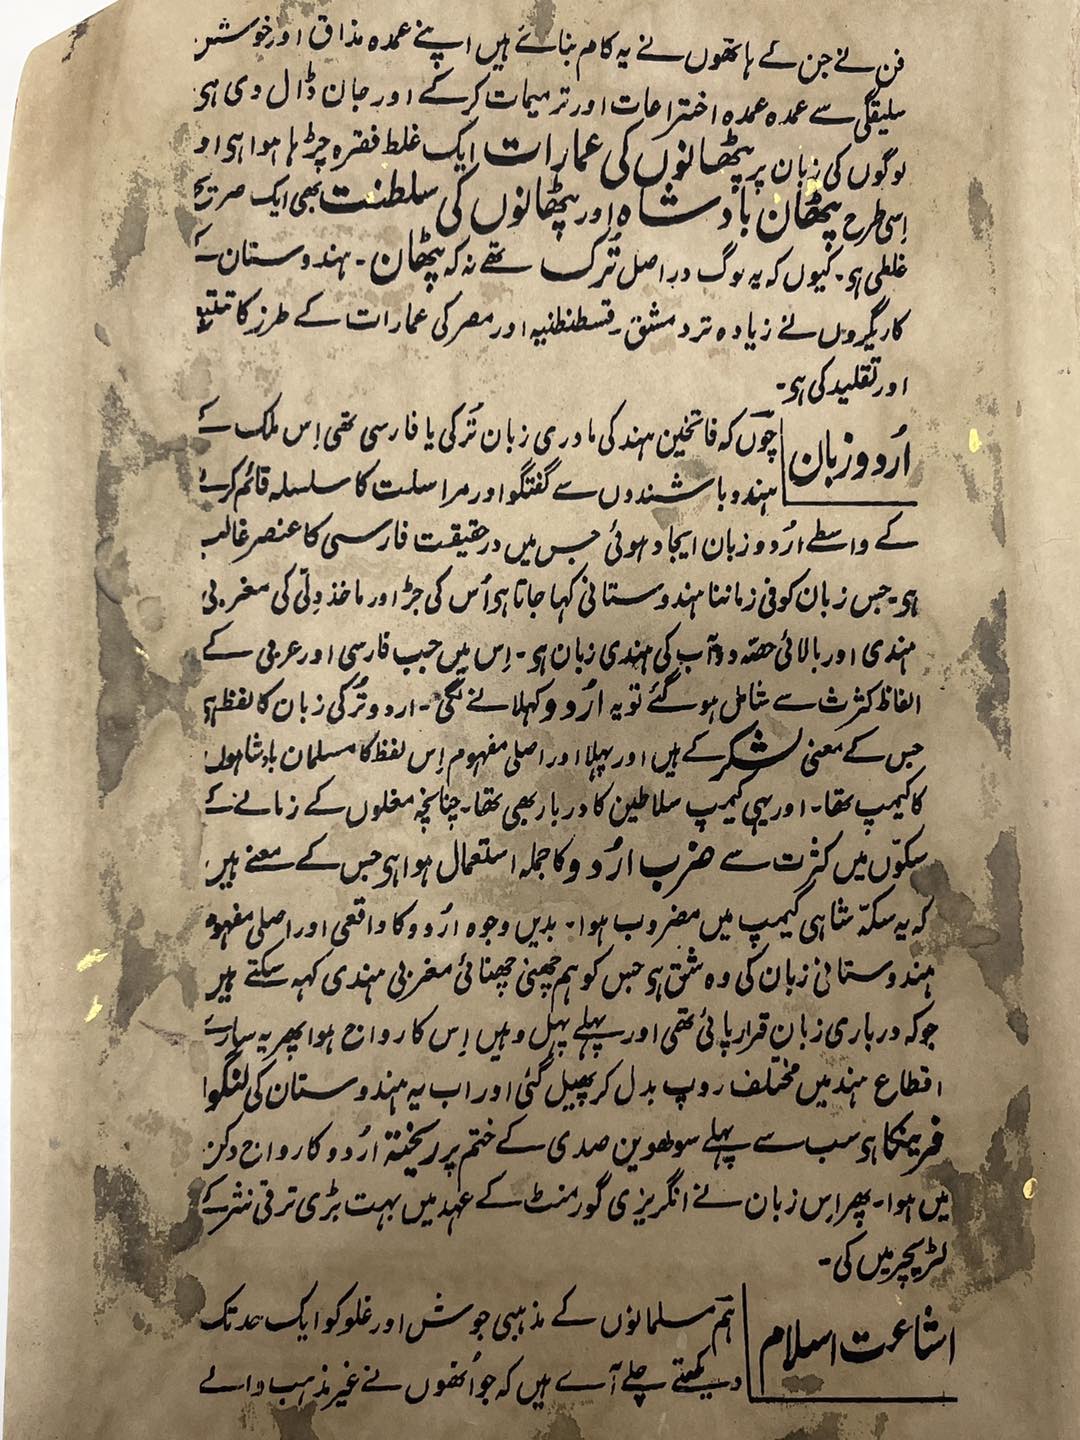 فن نے جن کے ہاتھوں نے یہ کام بنائے ہیں اپنے عمدہ مذاق اور خوش
سلیقگی سے عمدہ عمدہ اختراعات اور ترمیمات کرکے اور جان ڈال دی ہی
لوگوں کی زبان پر پٹھانوں کی عمارات ایک غلط فقرہ چڑہا ہوا ہی او
اِسی طرح پٹھان بادشاہ اور پٹھانوں کی سلطنت بھی ایک صریح
غلطی ہو۔ کیوں کہ یہ لوگ دراصل تُرک تھے نہ کہ پٹھان۔ ہندوستان کے
کاریگروں نے زیادہ تر دمشق۔ قسطنطنیہ اور مصر کی عمارات کے طرز کا تتبع
اور تقلید کی ہو۔
اُردو زبان
چوں کہ فاتحین ہند کی مادری زبان تُرکی یا فارسی تھی اِس ملک کے
ہندو باشندوں سے گفتگو اور مراسلت کا سلسلہ قائم کرنے
کے واسطے اُردو زبان ایجاد ہوئی جس میں درحقیقت فارسی کا عنصر غالب
ہو۔ جس زبان کو فی زماننا ہندوستانی کہا جاتا ہو اُس کی جڑ اور ماخذ دِلّی کی مغربی
ہندی اور بالائی حصّہ دوآب کی ہندی زبان ہو۔ اِس میں جب فارسی اور عربی کے
الفاظ کثرت سے شامل ہو گئے تو یہ اُردو کہلانے لگی۔ اردو تُرکی زبان کا لفظ ہی
جس کے معنی لشکر کے ہیں اور پہلا اور اصلی مفہوم اِس لفظ کا مسلمان بادشاہوں
کا کیمپ تھا۔ اور یہی کیمپ سلاطین کا دربار بھی تھا۔ چنانچہ مغلوں کے زمانے کے
سکوّں میں کثرت سے ضرب اُردو کا جملہ استعمال ہوا ہی جس کے معنے ہیں
کہ یہ سکہّ شاہی کیمپ میں مضروب ہوا۔ بدیں وجوہ اُردو کا واقعی اور اصلی مفہوم
ہندوستانی زبان کی وہ شق ہی جس کو ہم چھنی چھنائی مغربی ہندی کہہ سکتے ہیں
جو کہ درباری زبان قرار پائی تھی اور پہلے پہل وہیں اِس کا رواج ہوا پھر یہ سارے
اقطاع ہند میں مختلف روپ بدل کر پھیل گئی اور اب یہ ہندوستان کی لنگوا
فرینکا ہو سب سے پہلے سولھویں صدی کے ختم پر ریختۂ اُردو کا رواج دکن
میں ہوا۔ پھر اِس زبان نے انگریزی گورمنٹ کے عہد میں بہت بڑی ترقی نثر کے
لٹریچر میں کی۔
اشاعت اسلام
ہم مسلمانوں کے مذہبی جوش اور غلو کو ایک حد تک
دیکھتے چلے آئے ہیں کہ جو اُنھوں نے غیر مذہب والے